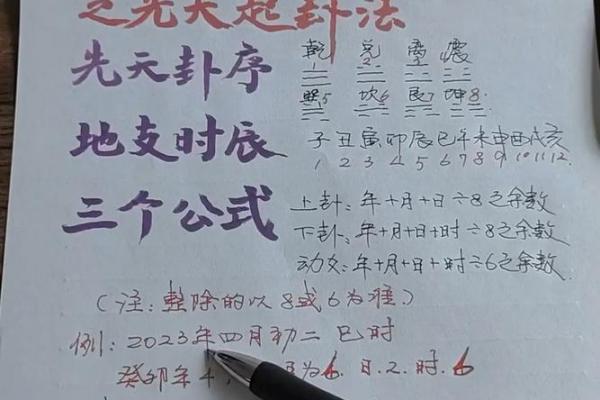 之先天起卦法
先天卦序
乾1 兑2 离3 震4
巽5 坎6 艮7 坤8
地支时辰
子丑寅卯辰巳午未申酉戌亥
1 2 3 4 5 6 7 8 9 10 11 12
三个公式
上卦:年+月+日÷8之余数
下卦:年+月+日+时÷8之余数
动爻:年+月+日+时÷6之余数
(注:整除的以8或6为准)
例:2023年四月初二 巳时
癸卯年4, 为6.日.2.时.6